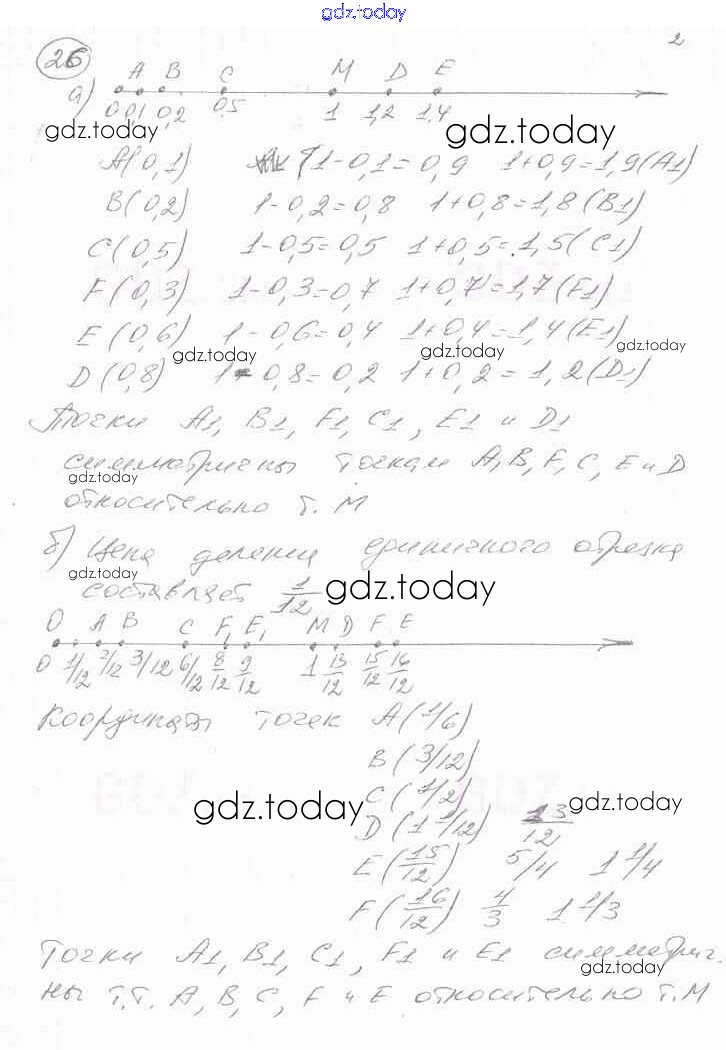 gdz.today
2
26
A B C M D E
а) 0 0,1 0,2 0,5 1 1,2 1,4
gdz.today gdz.today
A(0,1) 1-0,1=0,9 1+0,9=1,9(A1)
B(0,2) 1-0,2=0,8 1+0,8=1,8(B1)
C(0,5) 1-0,5=0,5 1+0,5=1,5(C1)
F(0,3) 1-0,3=0,7 1+0,7=1,7(F1)
E(0,6) 1-0,6=0,4 1+0,4=1,4(E1)
gdz.today gdz.today gdz.today
D(0,8) 1-0,8=0,2 1+0,2=1,2(D1)
Точки A1, B1, F1, C1, E1 и D1
симметричны точкам A, B, F, C, E и D
gdz.today
относительно т. М
б) Цена деления единичного отрезка
gdz.today
составляет 1/12 gdz.today
O A B C F1 E1 M D F E
0 1/12 2/12 3/12 6/12 8/12 9/12 1 13/12 15/12 16/12
Координаты точек A(1/6)
B(3/12)
C(1/2)
gdz.today gdz.today
D(1 1/12) 13/12
E(15/12) 5/4 1 1/4
F(16/12) 4/3 1 1/3
Точки A1, B1, C1, F1 и E1 симметрич-
gdz.today
ны т.т. A, B, C, F и E относительно т. М